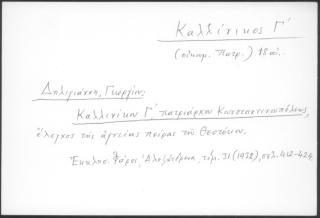 Καλλίνικος Γ΄
(οἰκουμ. Πατρ.) 18 αἰ.
Δηλιγιάννη, Γεωργίου;
Καλλινίκου Γ΄, πατριάρχου Κωνσταντινουπόλεως,
ἔλεγχος τῆς πείρας τοῦ Θεοτόκου.
Ἐκκλησ. Φάρος, Ἀλεξάνδρεια, τόμ. 31 (1932), σελ. 412-424